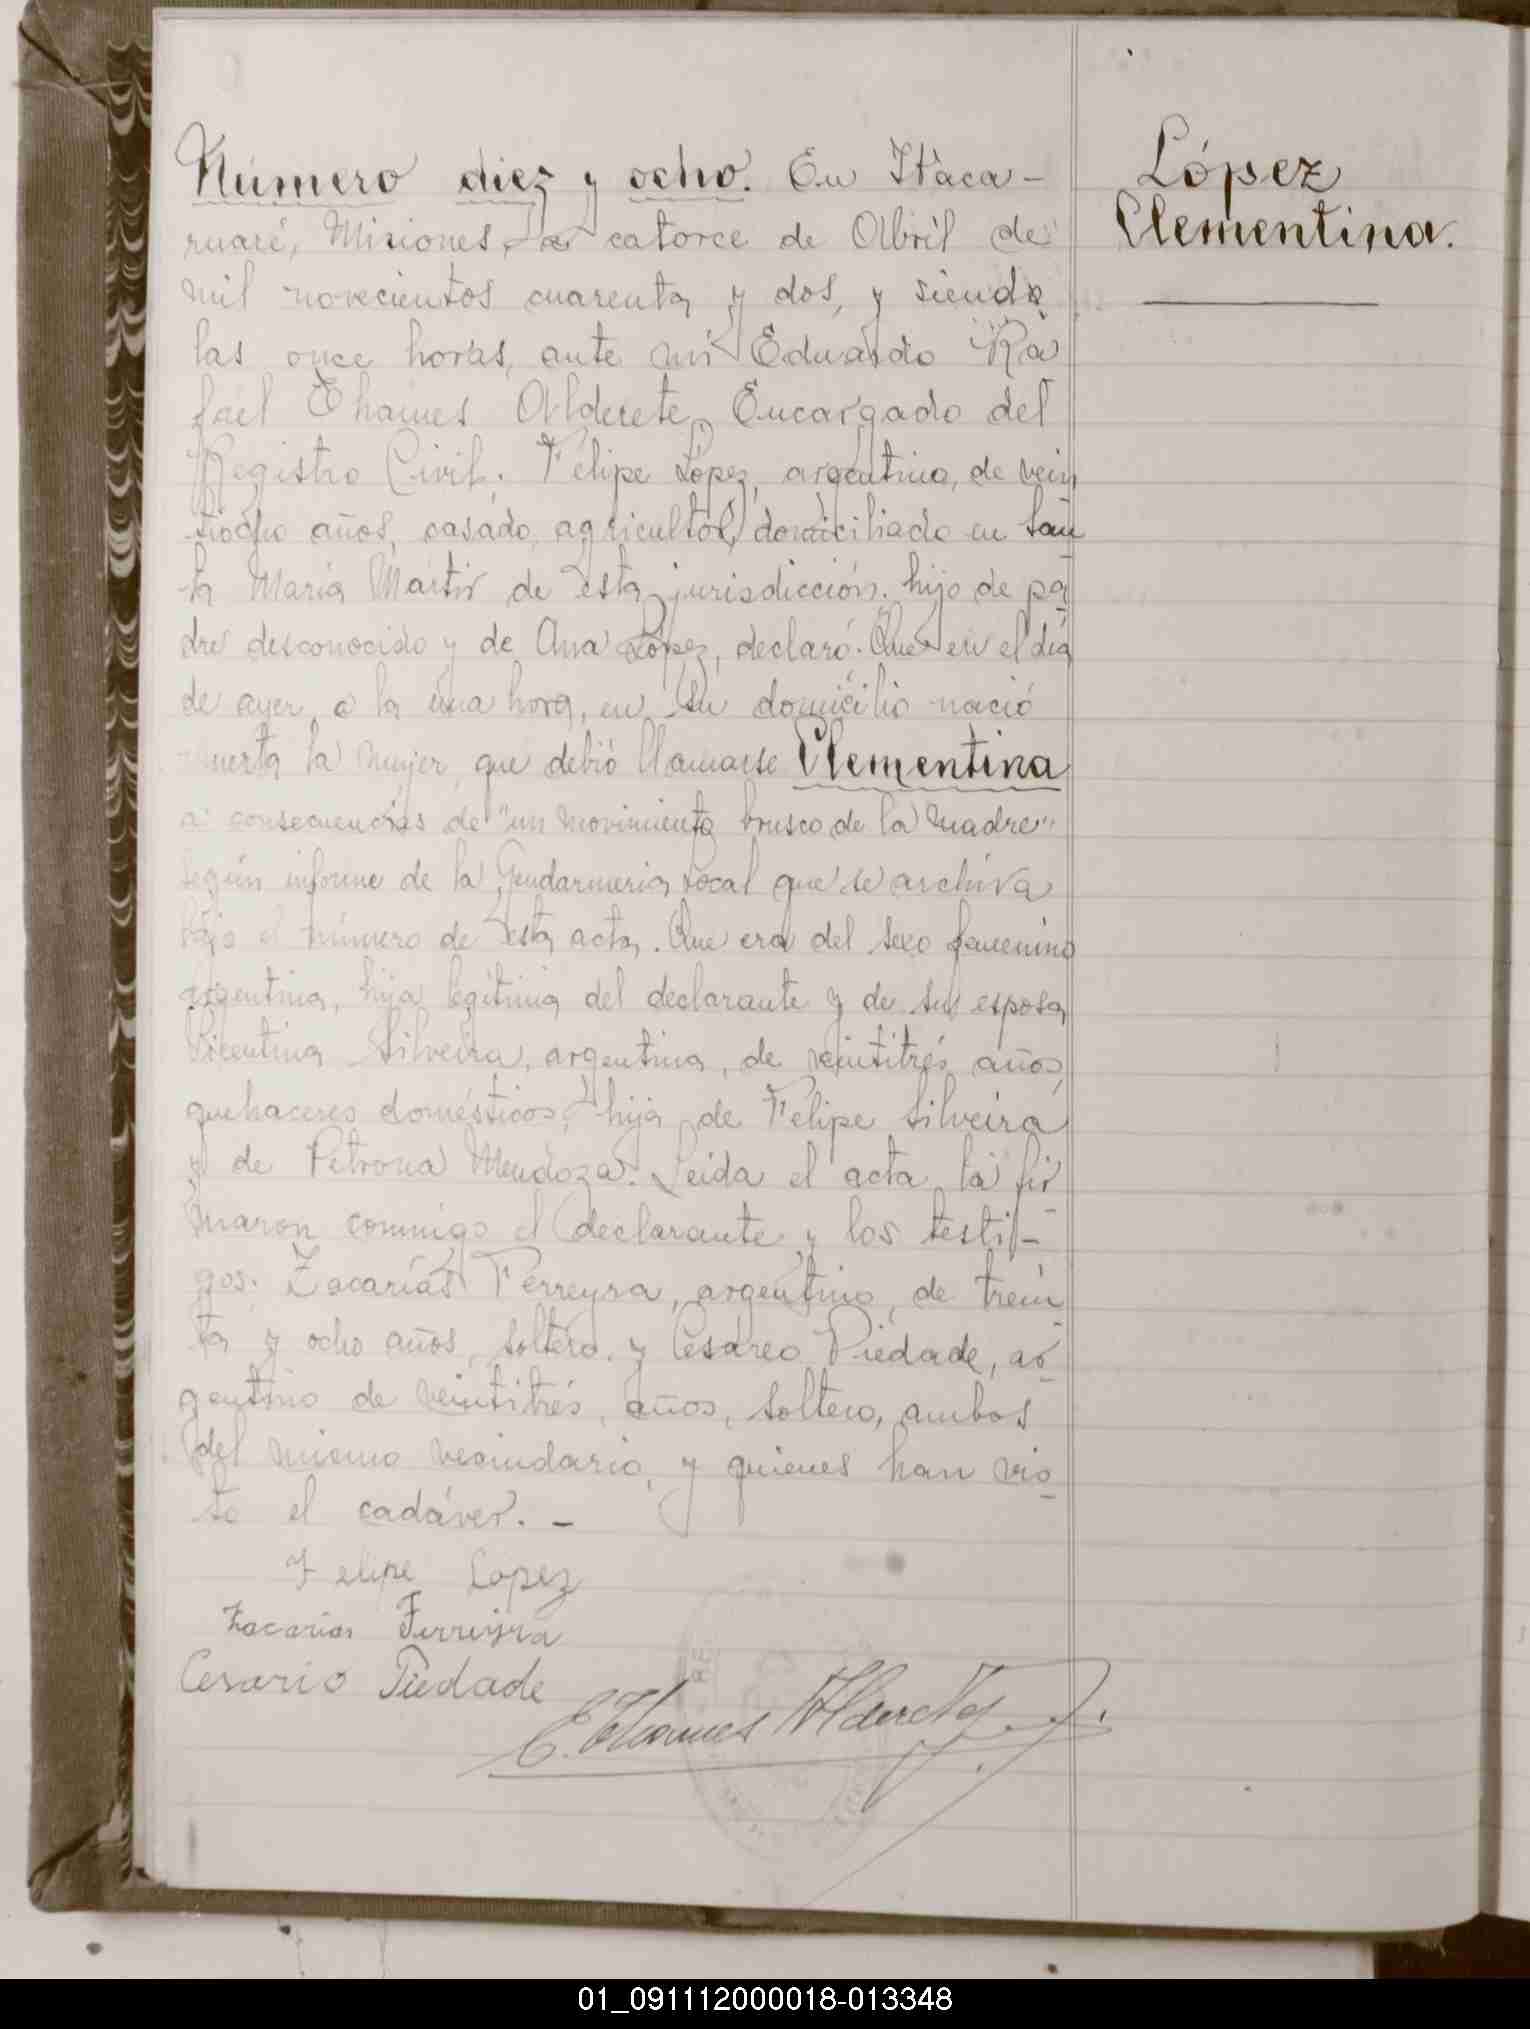 Número diez y ocho. En Itaca-
ruaré, Misiones, a catorce de Abril de
mil novecientos cuarenta y dos, y siendo
las once horas, ante mí Eduardo Ra
fael Thames Alderete, Encargado del
Registro Civil. Felipe López, argentino, de vein
tiocho años, casado, agricultor, domiciliado en San
ta María Mártir de esta jurisdicción. hijo de pa
dre desconocido y de Ana López, declaró: Que en el día
de ayer, a la una hora, en su domicilio nació
muerta la mujer, que debió llamarse Clementina
a consecuencias de "un movimiento brusco de la madre"
según informe de la Gendarmería local que se archiva
bajo el número de esta acta. Que era del sexo femenino
argentina, hija legítima del declarante y de su esposa
Vicentina Silveira, argentina, de veintitrés años,
quehaceres domésticos, hija de Felipe Silveira
y de Petrona Mendoza. Leída el acta la fir
maron conmigo el declarante y los testi-
gos: Zacarías Ferreyra, argentino, de trein
ta y ocho años, soltero. y Cesáreo Piedade, ar
gentino de veintitrés, años, soltero, ambos
del mismo vecindario, y quienes han vis
to el cadáver. -
Felipe Lopez
Zacarias Ferreyra
Cesario Piedade
E. Thames Alderete
López
Clementina.
01_091112000018-013348